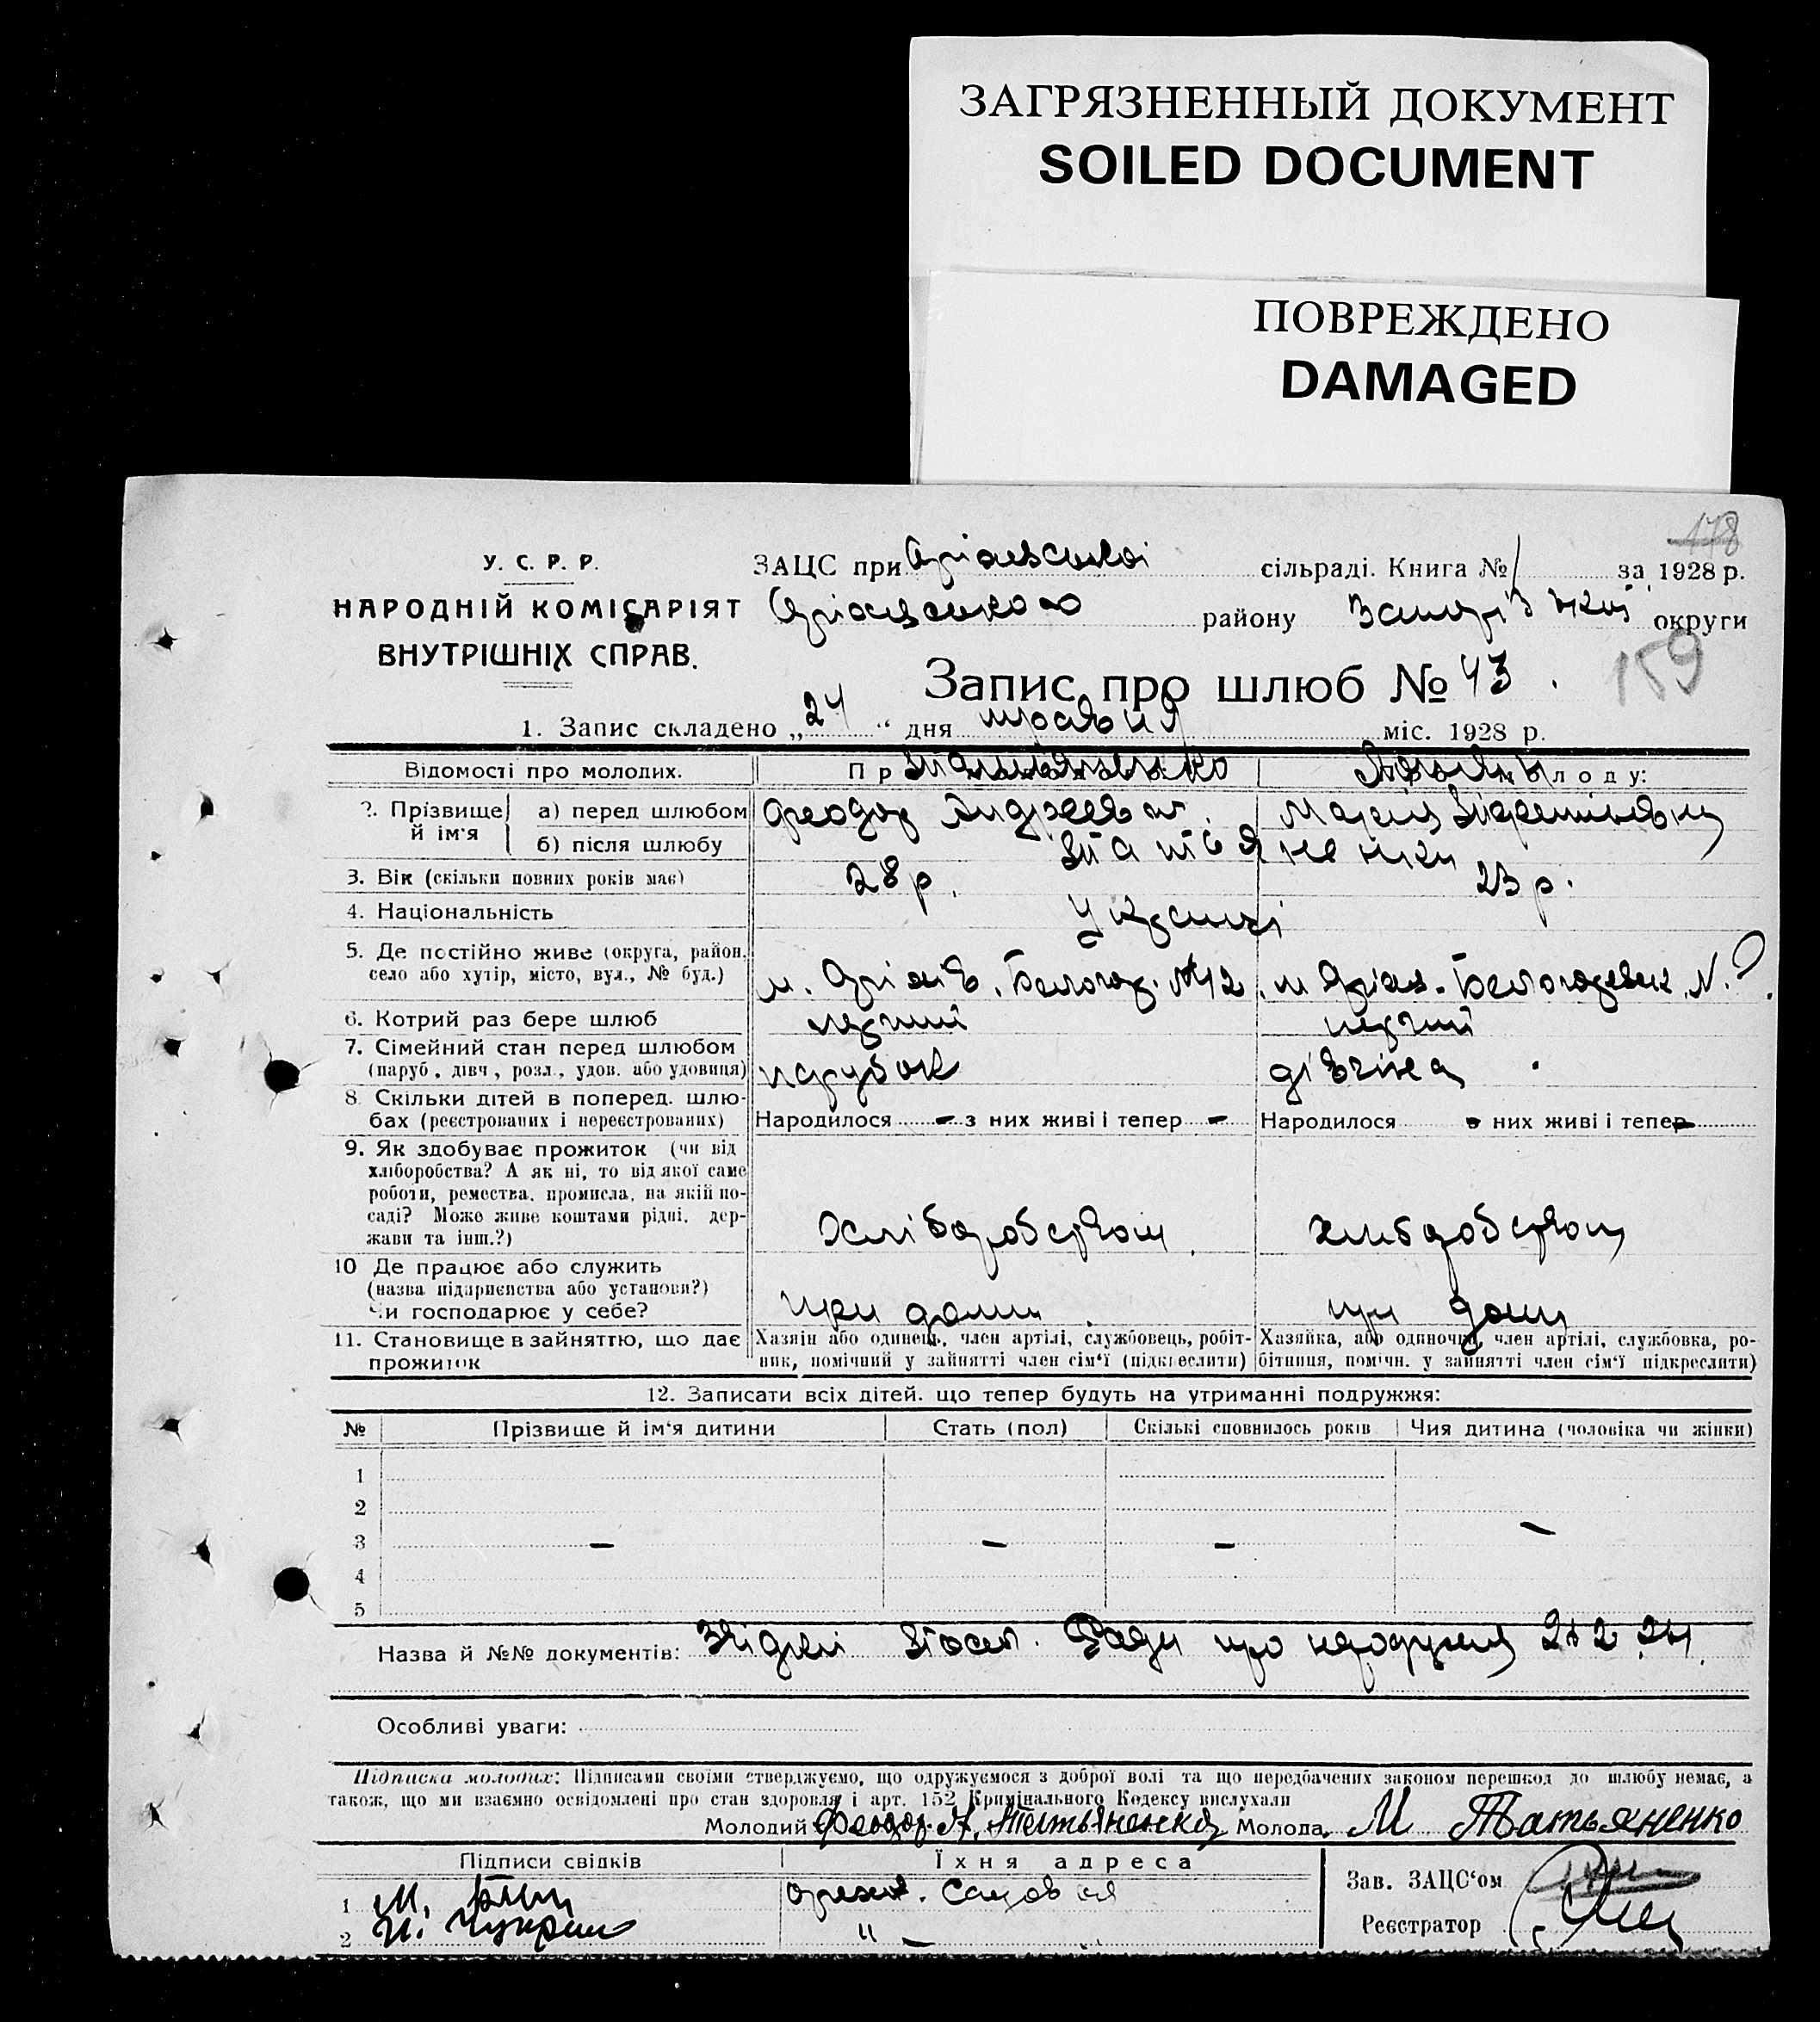 ЗАГРЯЗНЕННЫЙ ДОКУМЕНТ
SOILED DOCUMENT
ПОВРЕЖДЕНО
DAMAGED
178
У. С. Р. Р.
НАРОДНІЙ КОМІСАРІЯТ
ВНУТРІШНІХ СПРАВ.
ЗАЦС при Оріхівській сільраді. Книга № 1 за 1928 р.
району Запорізької округи
159
Запис про шлюб № 43.
1. Запис складено „24“ дня травня міс. 1928 р.
Відомості про молодих. Пр лоду:
2. Прізвище й ім'я а) перед шлюбом Феодор Андреевич Мария
б) після шлюбу Татьяненки
3. Вік (скільки повних років має) 28 р. 23 р.
4. Національність Українці
5. Де постійно живе (округа, район,
село або хутір, місто, вул., № буд.) м. Оріхів. Белогор. №42. м Оріхів. №.?
6. Котрий раз бере шлюб перший перший
7. Сімейний стан перед шлюбом
(паруб., дівч., розл., удов. або удовиця) парубок дівчина
8. Скільки дітей в поперед. шлю-
бах (реєстрованих і нереєстрованих) Народилося - з них живі і тепер - Народилося - них живі і тепер -
9. Як здобуває прожиток (чи від
хліборобства? А як ні, то від якої саме
роботи, ремества, промисла, на якій по-
саді? Може живе коштами рідні, дер-
жави та інш.?) Хліборобством хліборобством
10 Де працює або служить
(назва підприємства або установи?)
Чи господарює у себе? при доми при доми
11. Становище в зайняттю, що дає
прожиток
Хазяїн або одинець, член артілі, службовець, робіт-
ник, помічний у зайнятті член сім'ї (підкреслити)
Хазяйка, або одиночка, член артілі, службовка, ро-
бітниця, помічн. у зайнятті член сім'ї підкреслити)
12. Записати всіх дітей, що тепер будуть на утриманні подружжя:
№ Прізвище й ім'я дитини Стать (пол) Скількі сповнилось років Чия дитина (чоловіка чи жінки)
1
2
3 - - - -
4
5
Назва й №№ документів: про народження
Особливі уваги:
Підписка молодих: Підписами своїми стверджуємо, що одружуємося з доброї волі та що передбачених законом перешкод до шлюбу немає, а
також, що ми взаємно освідомлені про стан здоровля і арт. 152 Кримінального Кодексу вислухали
Молодий Феодор. А. Татьяненко Молода М Татьяненко
Підписи свідків Їхня адреса
1 М. Орехов. Садовая
2 И. " -
Зав. ЗАЦС'ом
Реєстратор